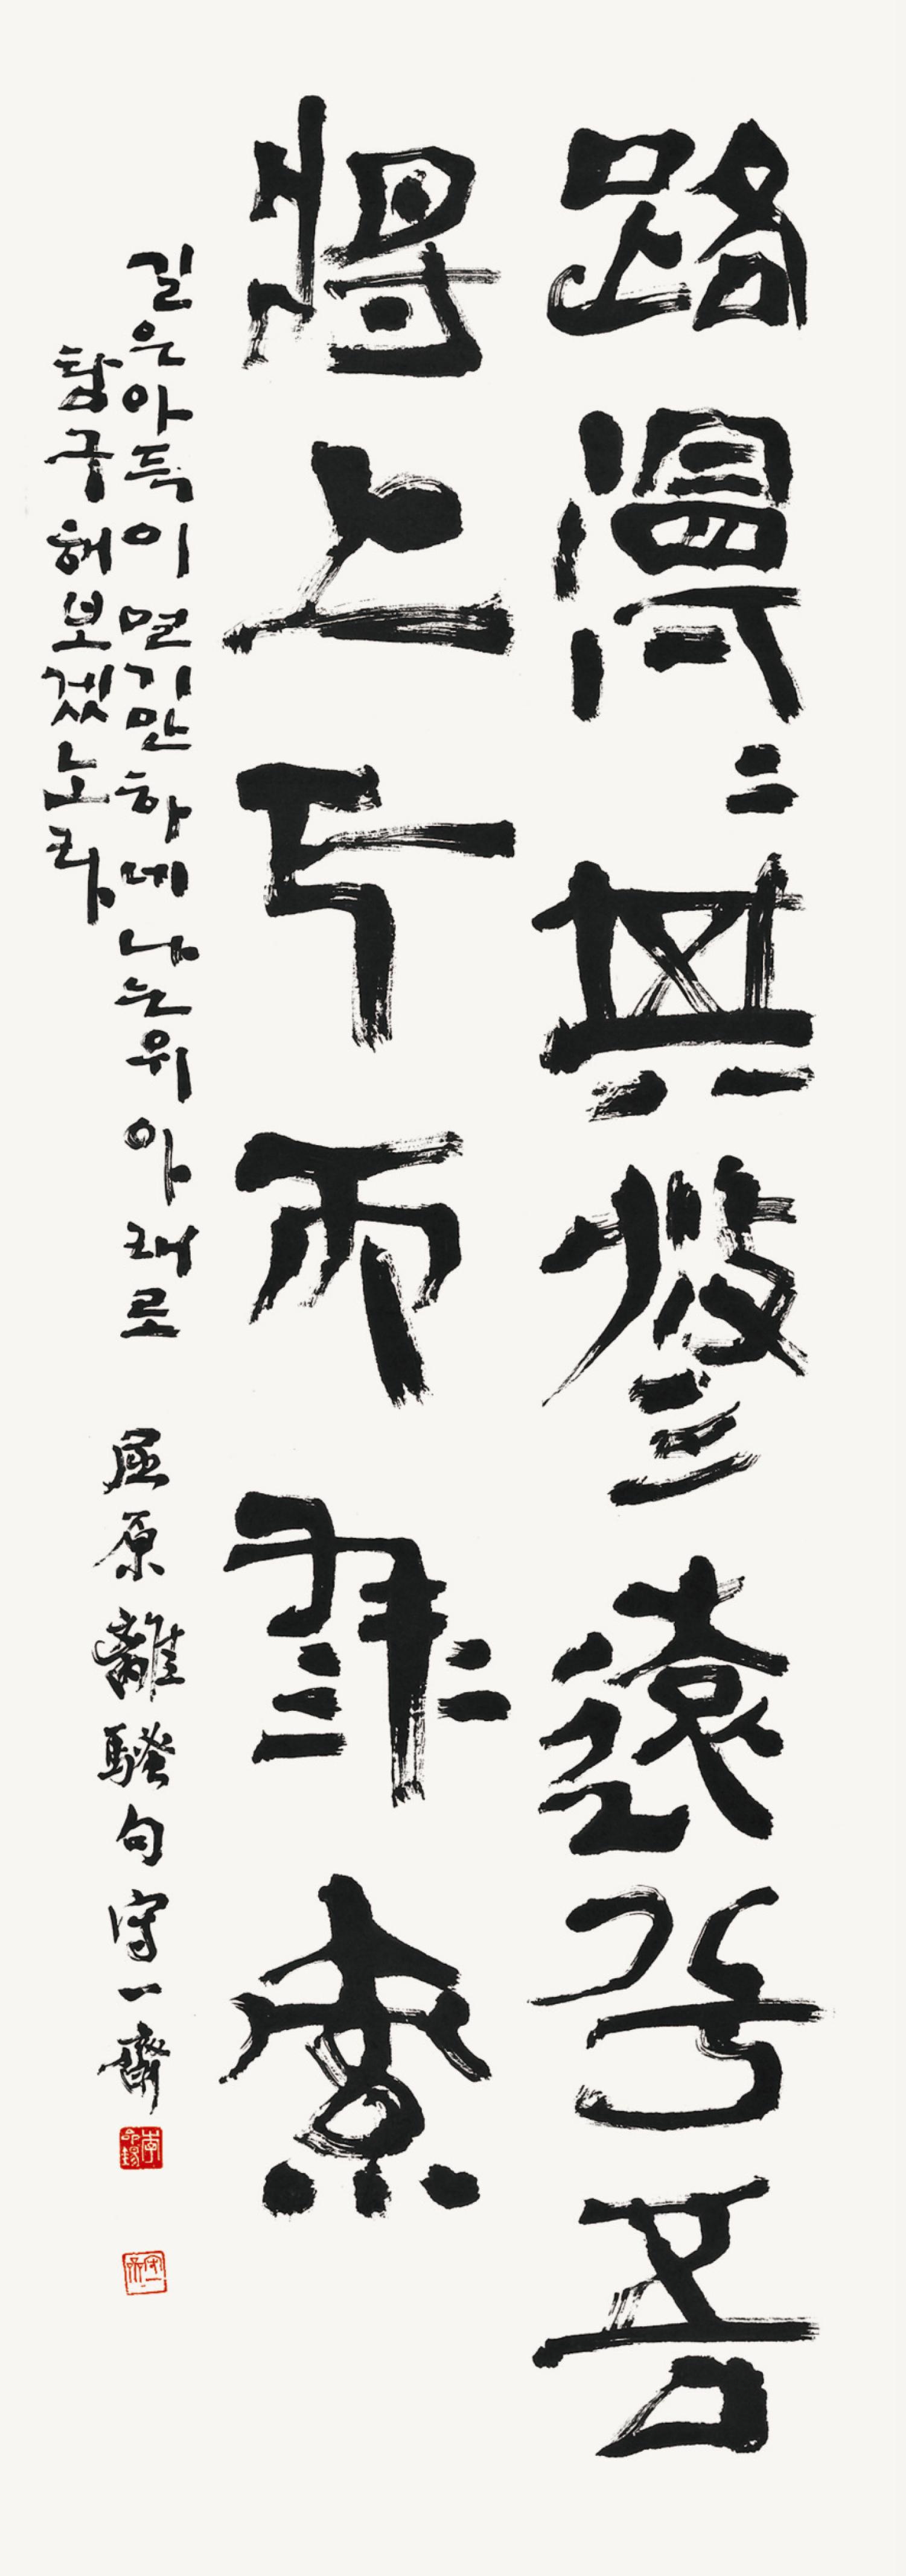 路漫〻其修遠兮吾
將上下而求索
길은아득이멀기만하네나는위아래로
탐구해보겠노라
屈原離騷句 守一齋